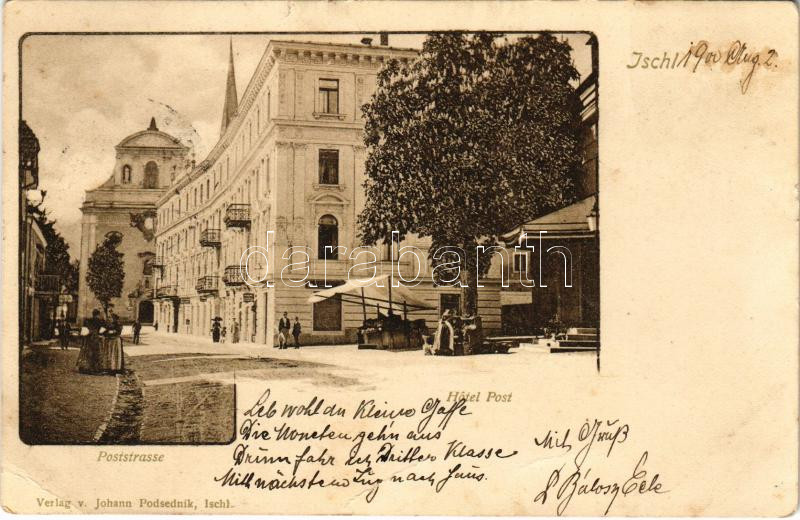 Ischl 1900 Aug 2.
darabanth
Hôtel Post
Poststrasse
Leb wohl du Kleine Gasse
Die Moneten gehn aus
Drum fahr ich Dritter Klasse
Mit nächstem Zug nach Haus.
Mit Gruß
Verlag v. Johann Podsednik, Ischl.